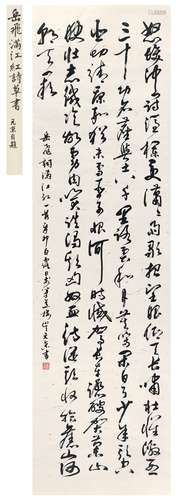 岳飛滿江紅詩草書
怒髮沖冠憑欄處瀟瀟雨歇抬望眼仰天長嘯壯懷激烈
三十功名塵與土八千里路雲和月莫等閒白了少年頭空
悲切靖康恥猶未雪臣子恨何時滅駕長車踏破賀蘭山
缺壯志飢餐胡虜肉笑談渴飲匈奴血待從頭收拾舊山河
朝天闕
岳飛詞滿江紅一首辛卯白露